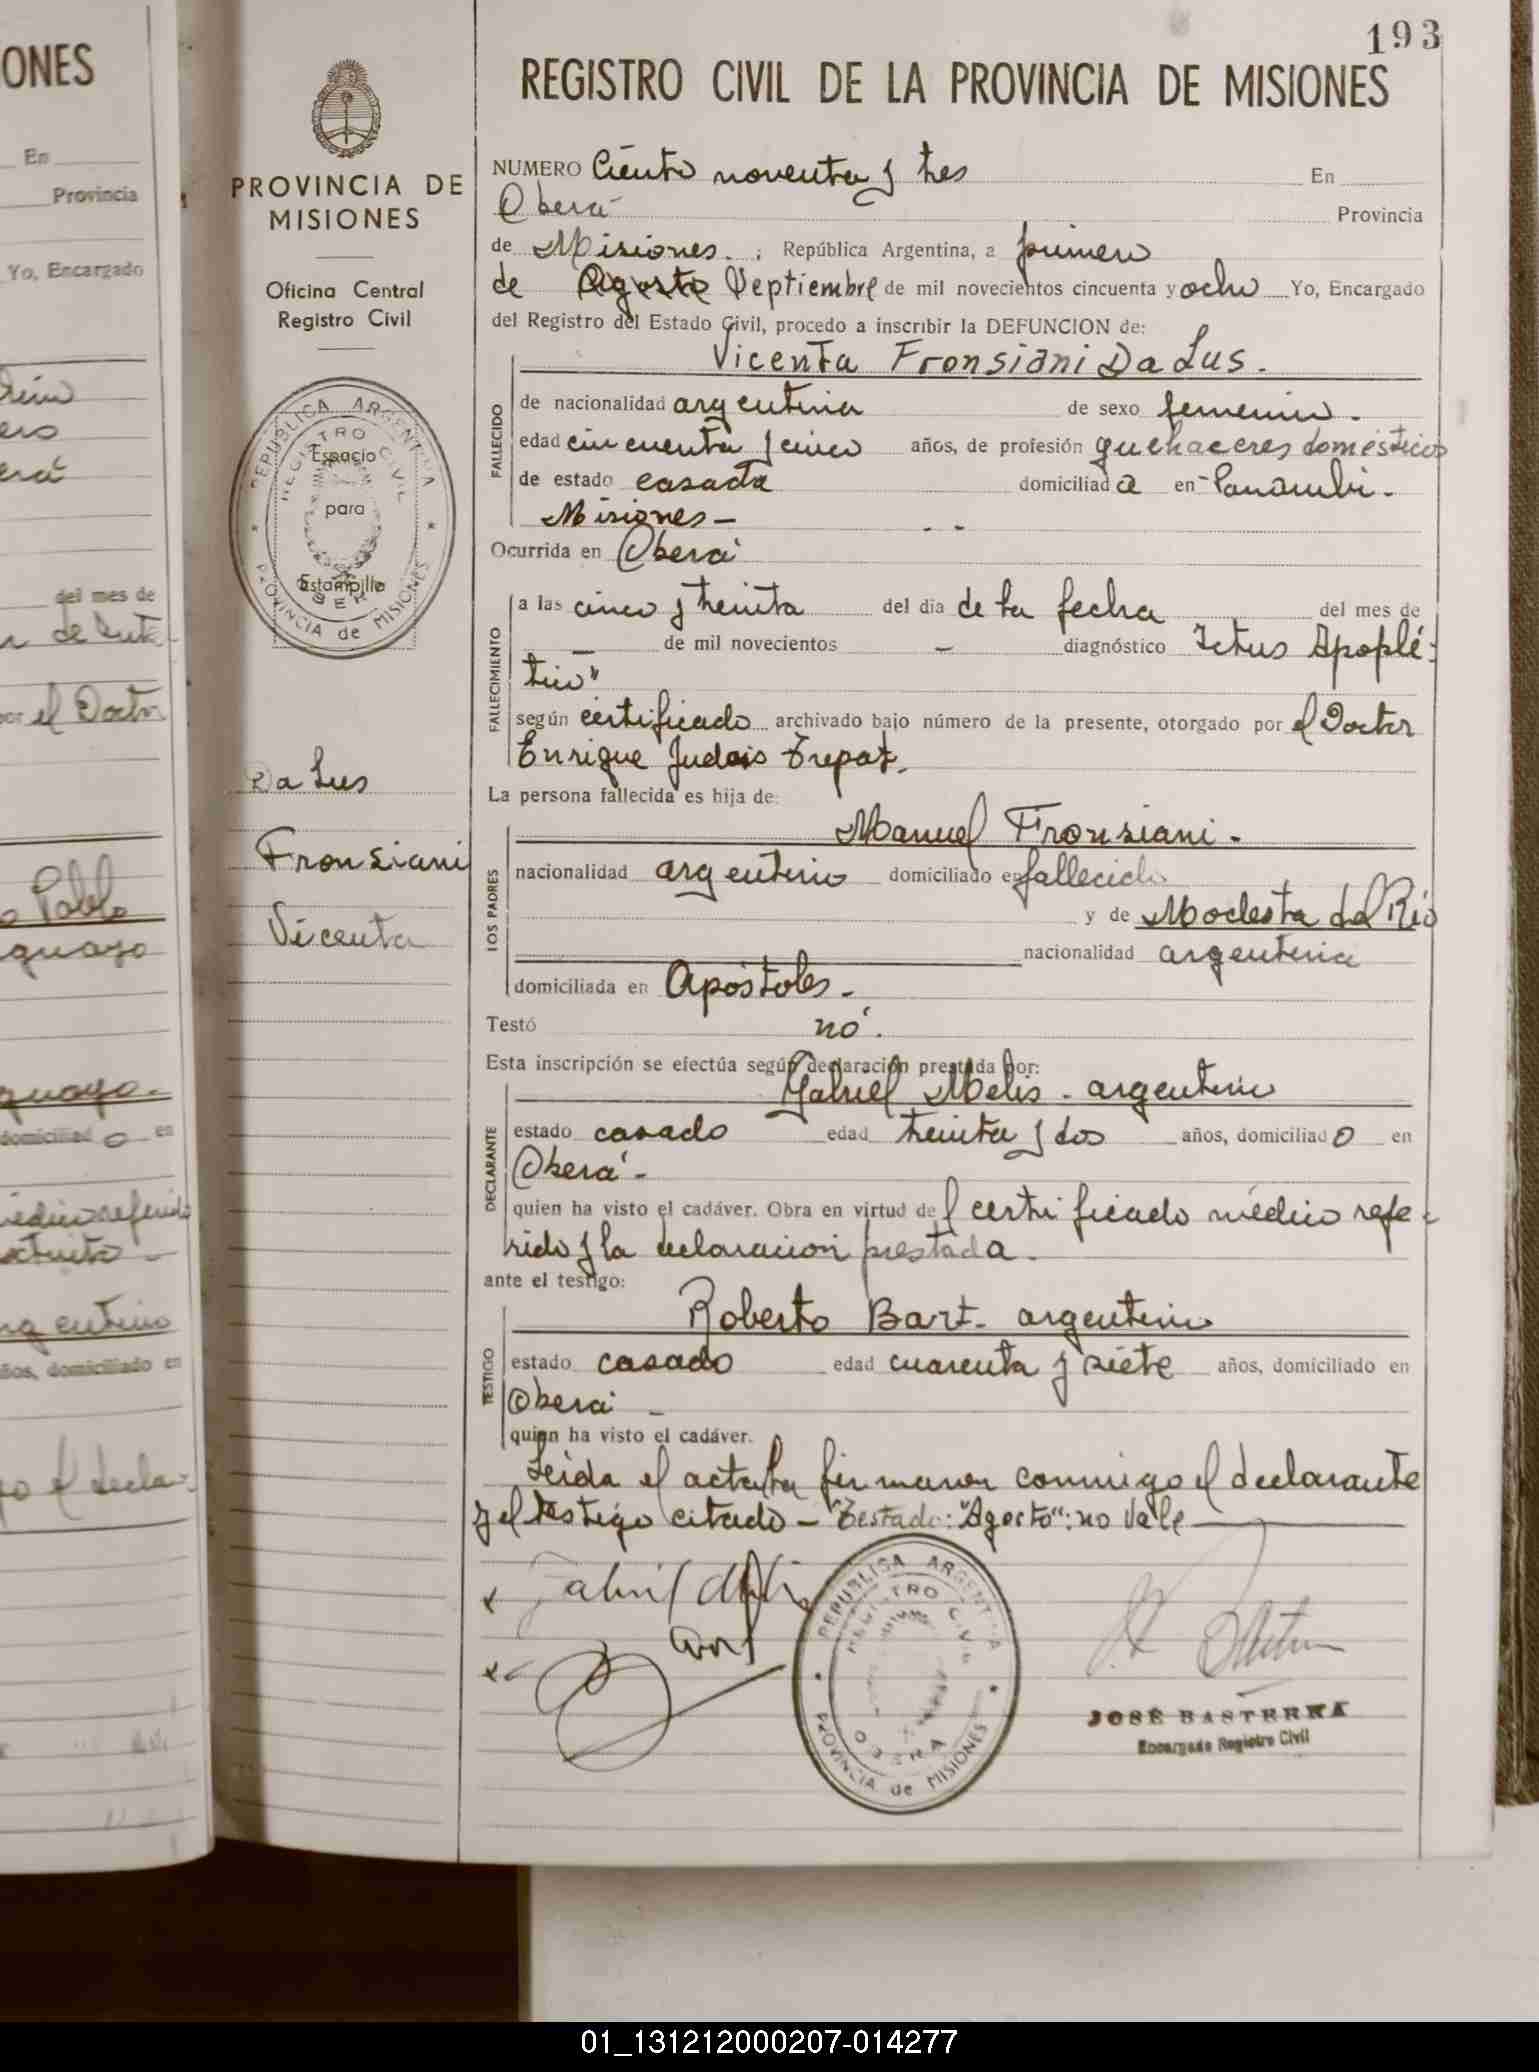 193
REGISTRO CIVIL DE LA PROVINCIA DE MISIONES
PROVINCIA DE
MISIONES
Oficina Central
Registro Civil
REPUBLICA ARGENTINA
REGISTRO CIVIL
Espacio
para
Estampilla
PROVINCIA de MISIONES
Da Lus
Fronsiani
Vicenta
NUMERO Ciento noventa y tres En
Oberá Provincia
de Misiones. ; República Argentina, a primero
de Agosto Septiembre de mil novecientos cincuenta y ocho Yo, Encargado
del Registro del Estado Civil, procedo a inscribir la DEFUNCION de:
Vicenta Fronsiani Da Lus.
FALLECIDO
de nacionalidad argentina de sexo femenino.
edad cincuenta y cinco años, de profesión quehaceres domésticos
de estado casada domiciliada en Panambi.
Misiones -
Ocurrida en Oberá
FALLECIMIENTO
a las cinco y treinta del dia de la fecha del mes de
de mil novecientos — diagnóstico Ictus Apoplé-
tico"
según certificado archivado bajo número de la presente, otorgado por el Doctor
Enrique Judais Trepat.
La persona fallecida es hija de:
LOS PADRES
Manuel Fronsiani -
nacionalidad argentino domiciliado en fallecido
y de Modesta del Río
nacionalidad argentina
domiciliada en Apóstoles -
Testó no.
Esta inscripción se efectúa según declaración prestada por:
DECLARANTE
Gabriel Melis - argentino
estado casado edad treinta y dos años, domiciliado en
Oberá -
quien ha visto el cadáver. Obra en virtud del certificado médico refe-
rido y la declaracion prestada.
ante el testigo:
TESTIGO
Roberto Bart - argentino
estado casado edad cuarenta y siete años, domiciliado en
Oberá -
quien ha visto el cadáver.
Leida el acta la firmaron conmigo el declarante
y el testigo citado - "Testado: "Agosto": no vale
REPUBLICA ARGENTINA
REGISTRO CIVIL
OBERA
PROVINCIA de MISIONES
JOSÉ BASTERRA
Encargado Registro Civil
ONES
En
Provincia
Yo, Encargado
del mes de
por el Doctor
Pablo
domiciliado en
médico referido
argentino
años, domiciliado en
01_131212000207-014277